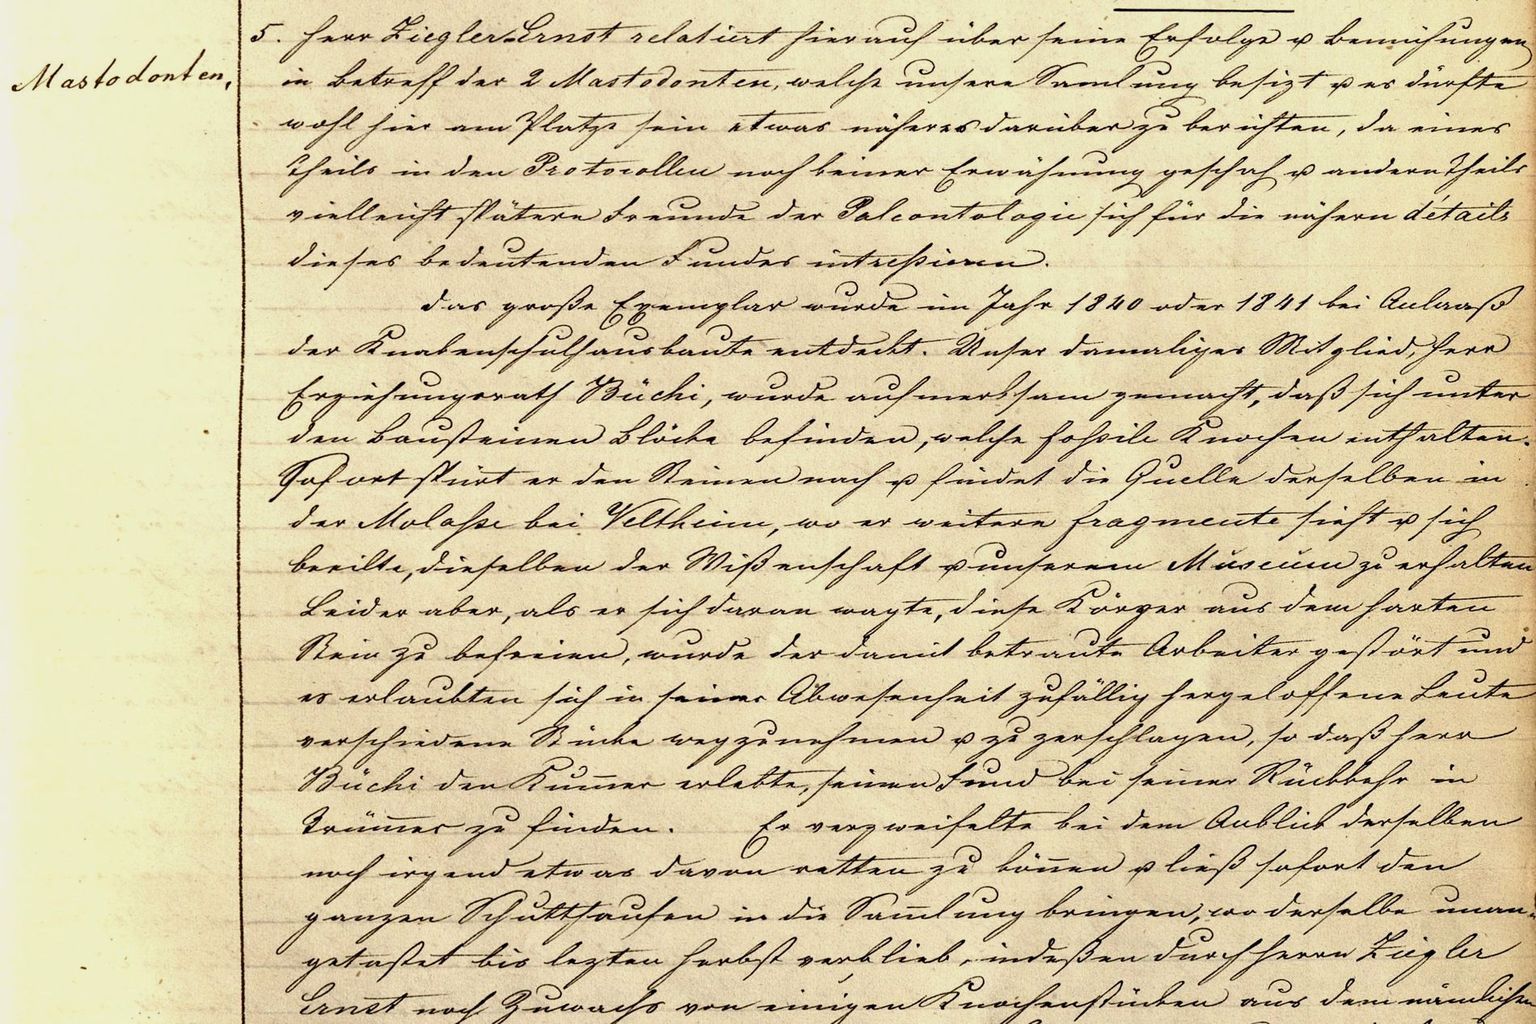 5. Herr Ziegler-Ernst relatiert hierauf über seine Erfolge u Bemühungen
Mastodonten,
in Betreff der 2 Mastodonten, welche unsere Samlung besizt u es dürfte
wohl hier am Platze sein etwas näheres darüber zu berichten, da eines
Theils in den Protocollen noch keiner Erwähnung geschah u andern Theils
vielleicht spätere Freunde der Paleontologie sich für die nähern détails
dieses bedeutenden Fundes intreßieren.
Das große Exemplar wurde im Jahr 1840 oder 1841 bei Anlaaß
der Knabenschulhausbaute entdekt. Unser damaliges Mitglied, Herr
Erziehungsrath Büchi, wurde aufmerksam gemacht, daß sich unter
den Bausteinen Blöcke befinden, welche foßile Knochen enthalten.
Sofort spürt er den Steinen nach u findet die Quelle derselben in
der Molaße bei Veltheim, wo er weitere fragmente sieht u sich
beeilte, dieselben der Wißenschaft u unserem Museum zu erhalten
Leider aber, als er sich daran wagte, diese Körper aus dem harten
Stein zu befreien, wurde der damit betraute Arbeiter gestört und
es erlaubten sich in seiner Abwesenheit zufällig hergeloffene Leute
verschiedene Stücke wegzunehmen u zu zerschlagen, so daß Herr
Büchi den Kum̄er erlebte, seinen Fund bei seiner Rückkehr in
Trüm̄er zu finden. Er verzweifelte bei dem Anblick derselben
noch irgend etwas davon retten zu kön̄en u ließ sofort den
ganzen Schutthaufen in die Sam̄lung bringen, wo derselbe unan-
getastet bis lezten Herbst verblieb, indeßen durch Herrn Ziegler
Ernst noch Zuwachs von einigen Knochenstücken aus dem nämlichen